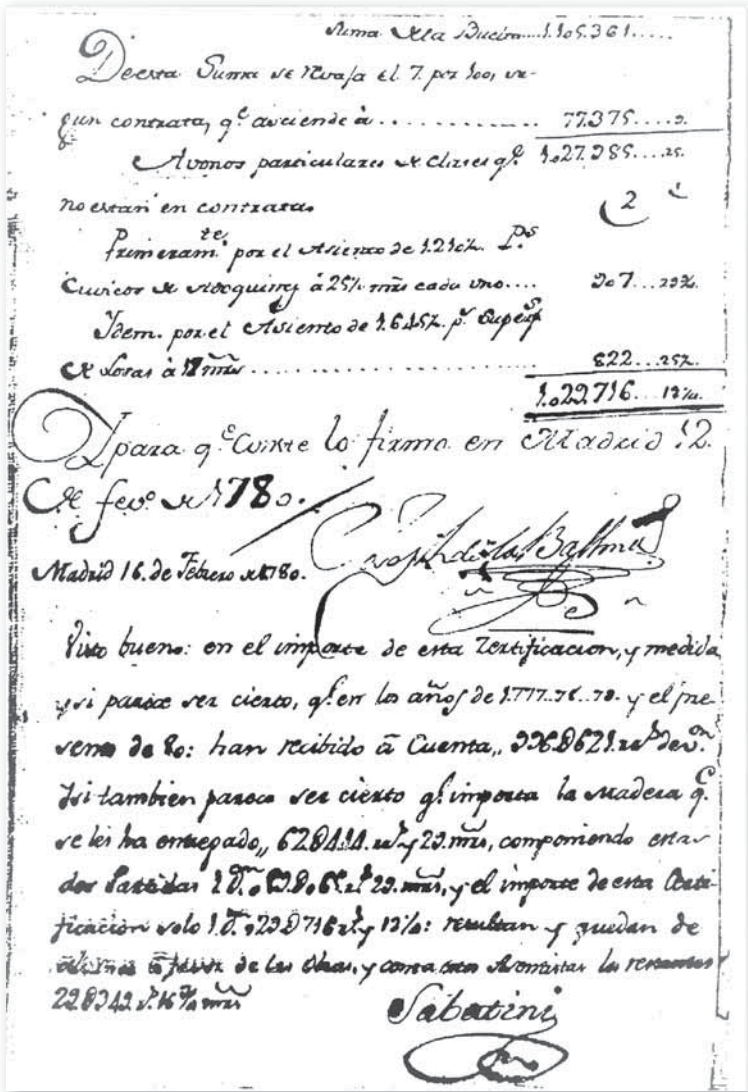 Suma de la Bueltа....1.105.361.....
De esta Suma se revaja el 7. por 100, se-
gun contrata, q.e asciende à .............. 77.375....9.
Avonos particulares de clases q.e 1.027.985....25.
no estan en contratas
Primeram.te por el Asiento de 1.210½. P.s
Cuvicos de à 25½ mrs cada uno.... 907...
Idem. por el Asiento de 1.645½. p.s superf
de Losas à 17 mrs ............... 822...25½.
1.029.716...
Y para q.e Conste lo firmo en Madrid 12.
de fev.o de 1780.
Madrid 16. de Febrero de 1780.
Visto bueno: en el importe de esta Zertificacion, y medida
y si parece ser cierto, q.e en los años de 1.777.78..79. y el pre-
sente de 80: han recibido à Cuenta,, de v.n
Y si tambien parece ser cierto q.e importa la Madera q.e
se les ha entregado,, y 29. mrs, componiendo estas
dos Partidas 29. mrs, y el importe de esta Certi-
ficacion solo y resultan y quedan de
à favor de las Obras, y contra estos Asentistas los restantes
mrs
Sabatini